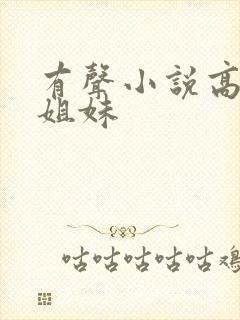 有聲小說高
姐妹
咕咕咕咕咕雞